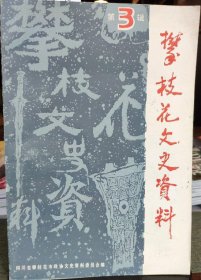 第3辑
攀枝花文史資料
攀枝花文史資料
四川省攀枝花市政协文史资料委员会编